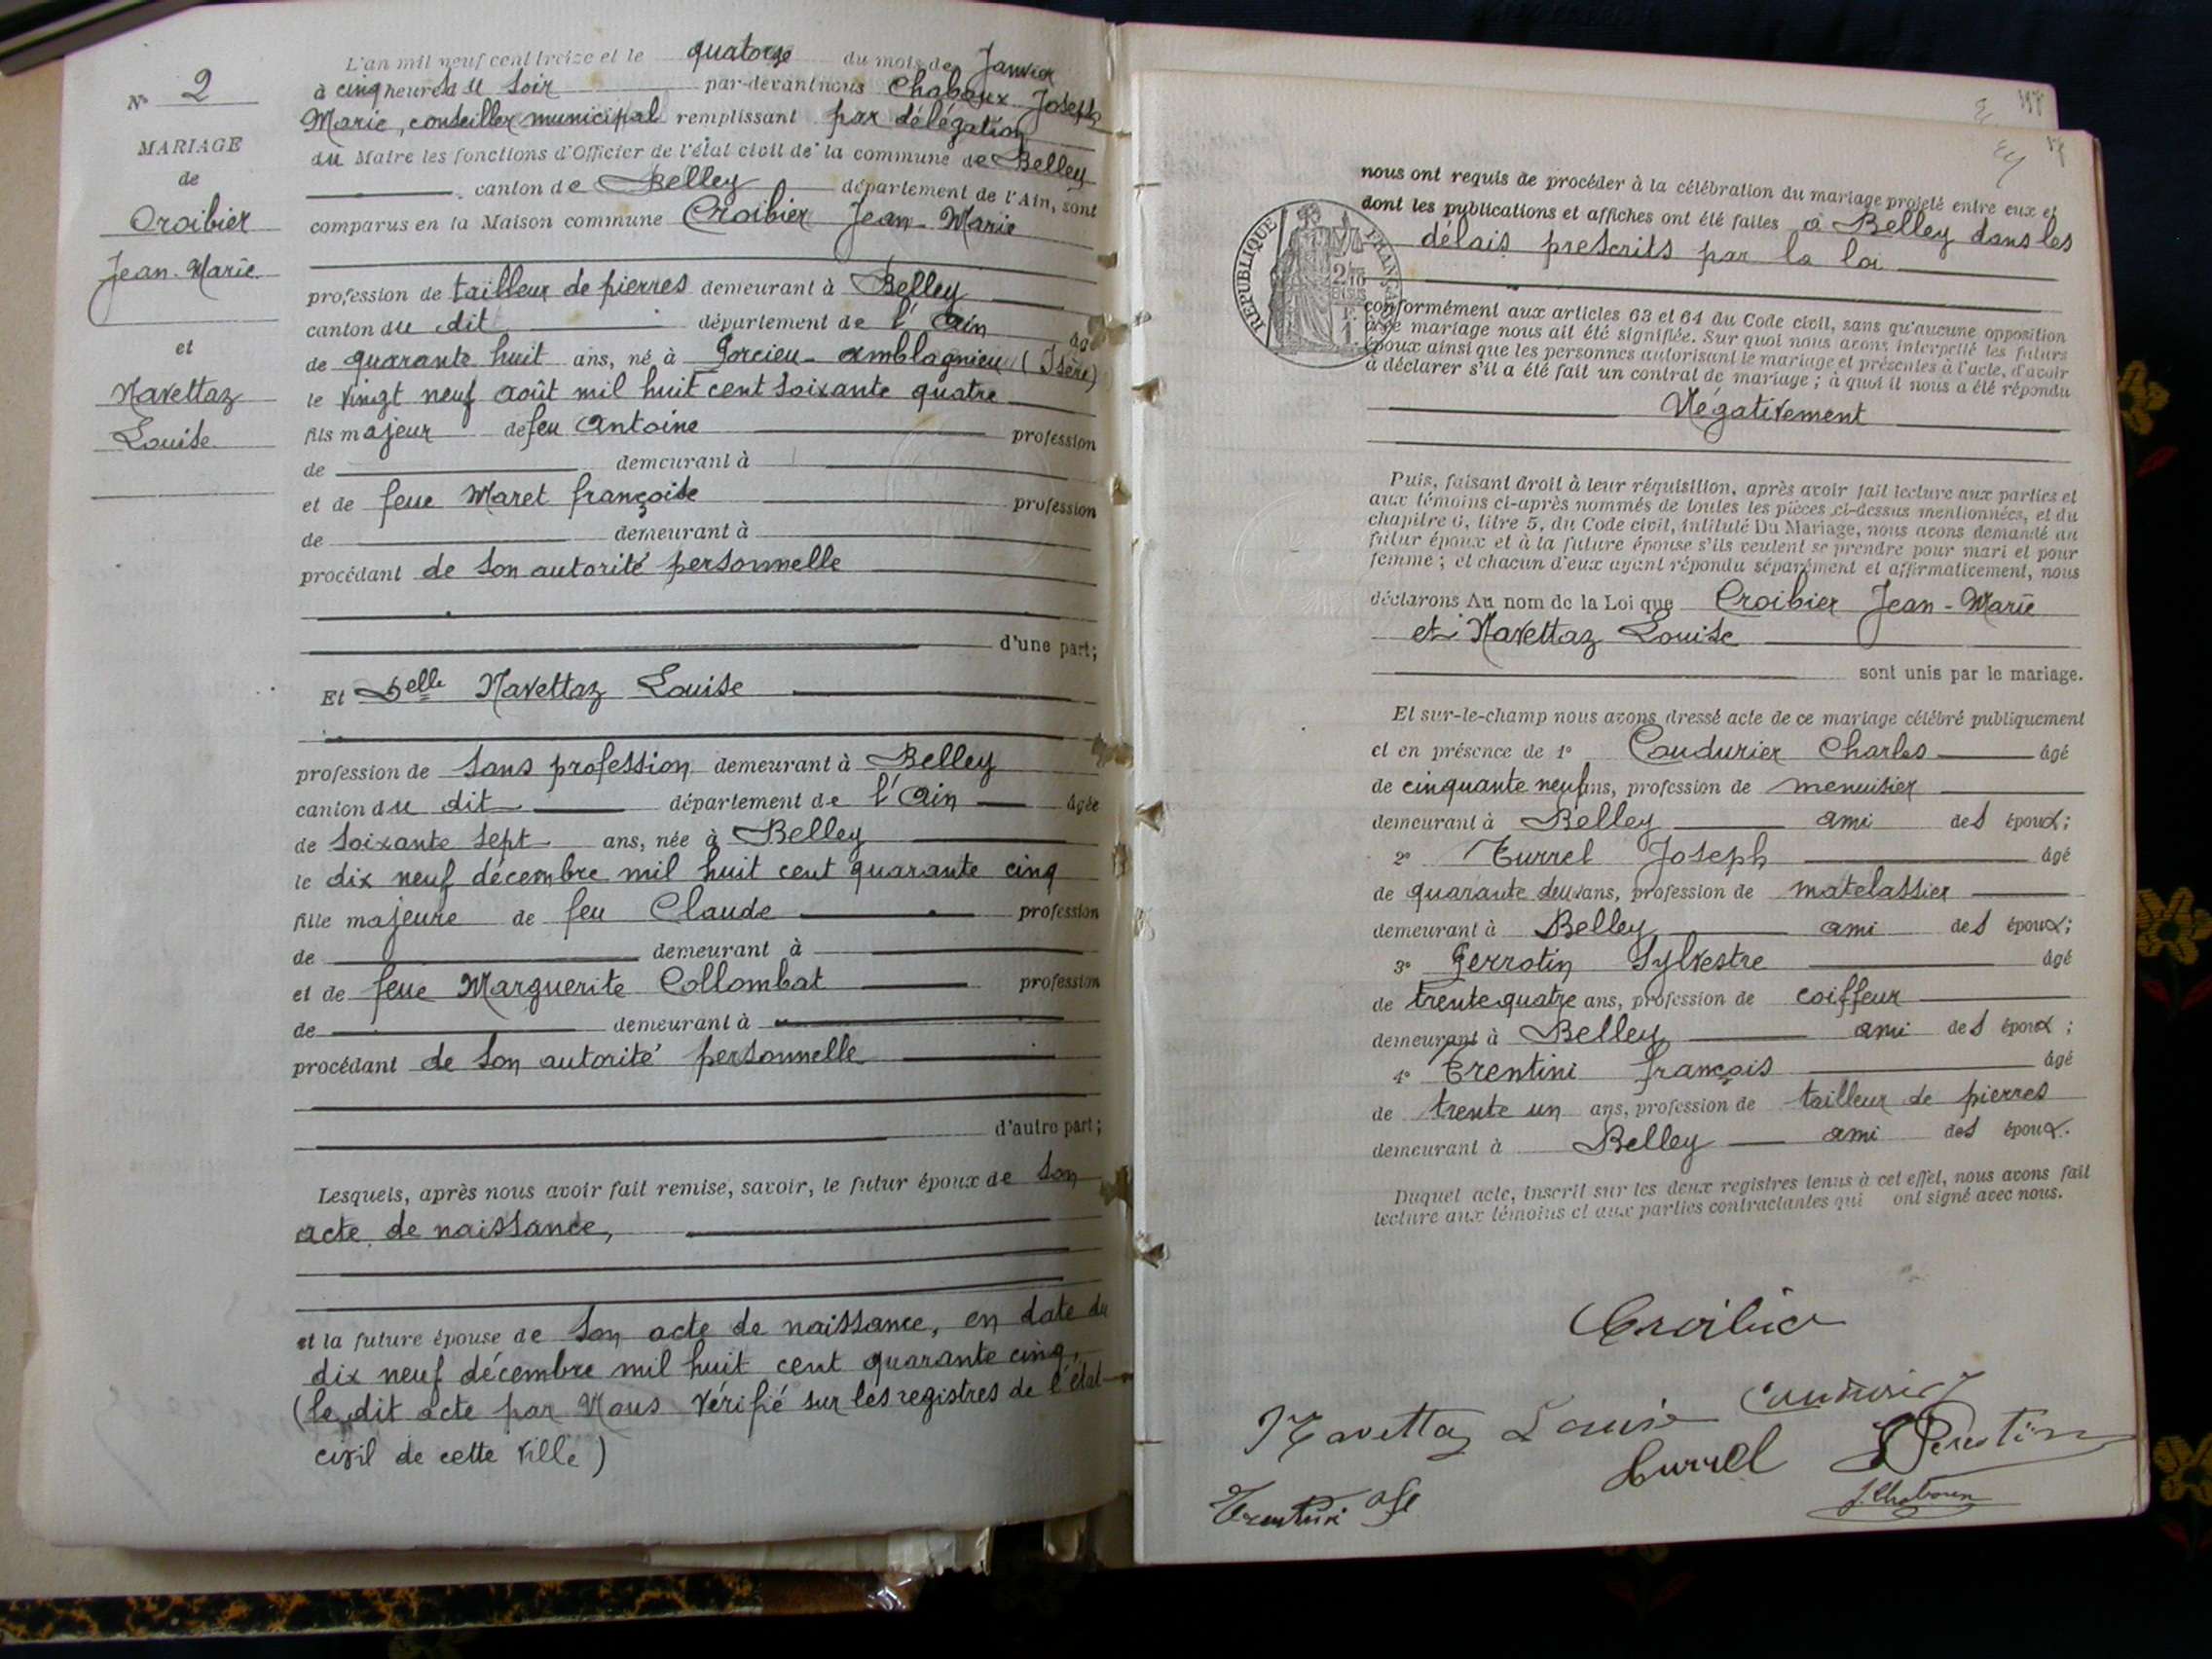 N° 2
MARIAGE
de
Croibier
Jean-Marie
et
Navettaz
Louise
L'an mil neuf cent treize et le quatorze du mois de Janvier
à cinq heures du soir par-devant nous Chaboux Joseph
Marie, conseiller municipal remplissant par délégation
du Maire les fonctions d'Officier de l'état civil de la commune de Belley
canton de Belley département de l'Ain, sont
comparus en la Maison commune Croibier Jean-Marie
profession de tailleur de pierres demeurant à Belley
canton du dit département de l'Ain âgé
de quarante huit ans, né à Porcieu-Amblagnieu (Isère)
le vingt neuf août mil huit cent soixante quatre
fils majeur de feu Antoine profession
de demeurant à
et de feue Maret françoise profession
de demeurant à
procédant de son autorité personnelle
d'une part;
Et Delle Navettaz Louise
profession de sans profession demeurant à Belley
canton du dit département de l'Ain âgée
de soixante sept ans, née à Belley
le dix neuf décembre mil huit cent quarante cinq
fille majeure de feu Claude profession
de demeurant à
et de feue Marguerite Collombat profession
de demeurant à
procédant de son autorité personnelle
d'autre part;
Lesquels, après nous avoir fait remise, savoir, le futur époux de son
acte de naissance,
et la future épouse de son acte de naissance, en date du
dix neuf décembre mil huit cent quarante cinq,
(le dit acte par Nous vérifié sur les registres de l'état
civil de cette ville)
nous ont requis de procéder à la célébration du mariage projeté entre eux et
dont les publications et affiches ont été faites à Belley dans les
délais prescrits par la loi
RÉPUBLIQUE FRANÇAISE
conformément aux articles 63 et 64 du Code civil, sans qu'aucune opposition
à ce mariage nous ait été signifiée. Sur quoi nous avons interpellé les futurs
époux ainsi que les personnes autorisant le mariage et présentes à l'acte, d'avoir
à déclarer s'il a été fait un contrat de mariage; à quoi il nous a été répondu
Négativement
Puis, faisant droit à leur réquisition, après avoir fait lecture aux parties et
aux témoins ci-après nommés de toutes les pièces ci-dessus mentionnées, et du
chapitre 6, titre 5, du Code civil, intitulé Du Mariage, nous avons demandé au
futur époux et à la future épouse s'ils veulent se prendre pour mari et pour
femme; et chacun d'eux ayant répondu séparément et affirmativement, nous
déclarons Au nom de la Loi que Croibier Jean-Marie
et Navettaz Louise
sont unis par le mariage.
Et sur-le-champ nous avons dressé acte de ce mariage célébré publiquement
et en présence de 1° Coudurier Charles âgé
de cinquante neuf ans, profession de menuisier
demeurant à Belley ami des époux;
2° Turrel Joseph âgé
de quarante deux ans, profession de matelassier
demeurant à Belley ami des époux;
3° Perrotin Sylvestre âgé
de trente quatre ans, profession de coiffeur
demeurant à Belley ami des époux;
4° Trentini françois âgé
de trente un ans, profession de tailleur de pierres
demeurant à Belley ami des époux.
Duquel acte, inscrit sur les deux registres tenus à cet effet, nous avons fait
lecture aux témoins et aux parties contractantes qui ont signé avec nous.
Croibier
Navettaz Louise Coudurier
Turrel Perrotin
Trentini J. Chaboux